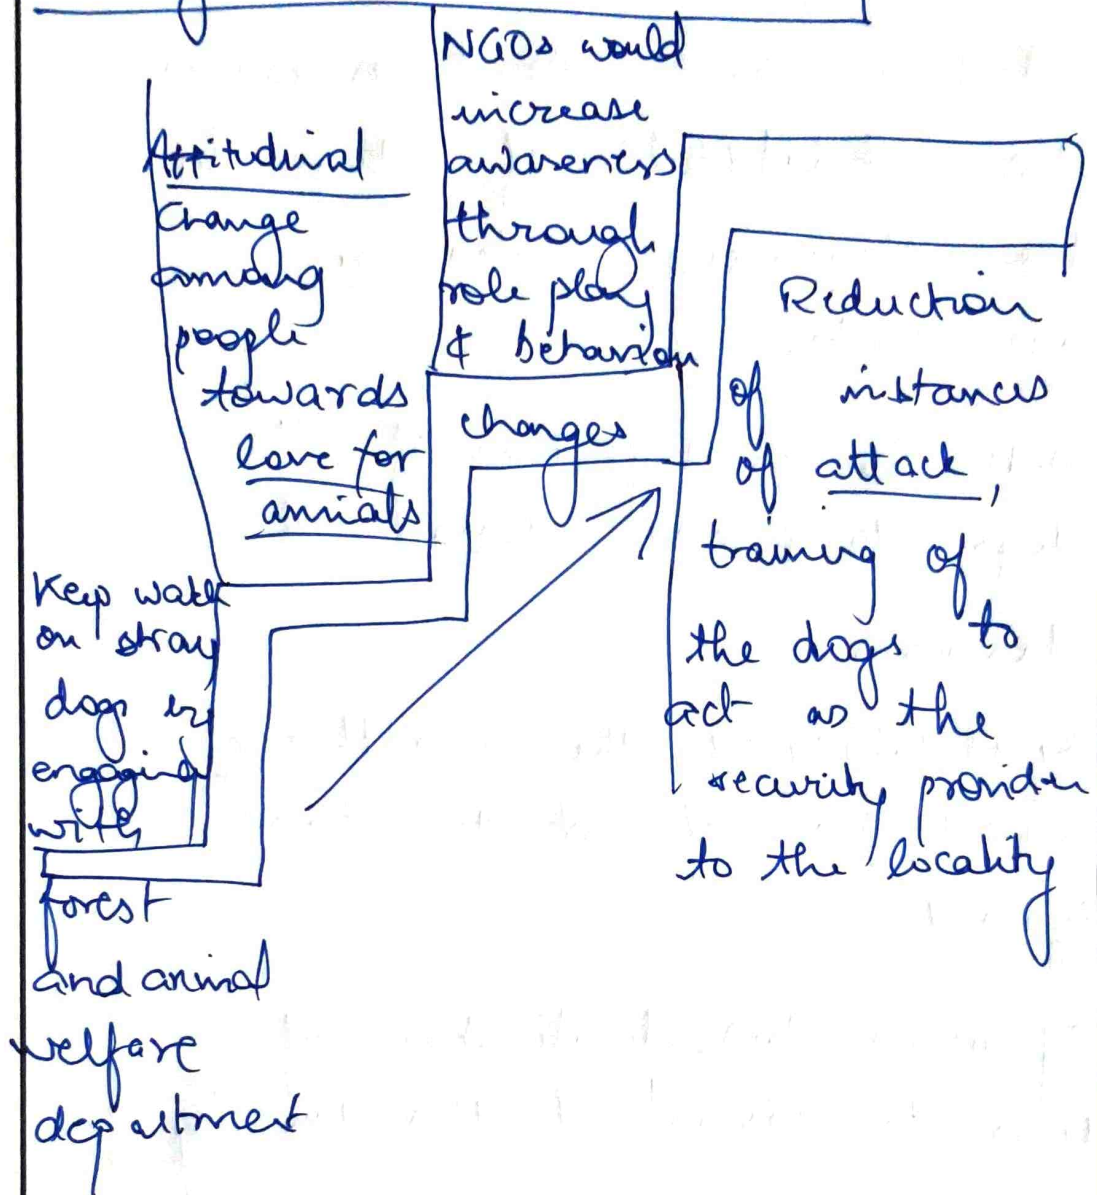 Keep watch
on stray
dogs by
engaging
with
forest
and animal
welfare
department
Attitudinal
Change
among
people
towards
love for
animals
NGOs would
increase
awareness
through
role play
& behaviour
changes
Reduction
of instances
of attack,
training of
the dogs to
act as the
security provider
to the locality